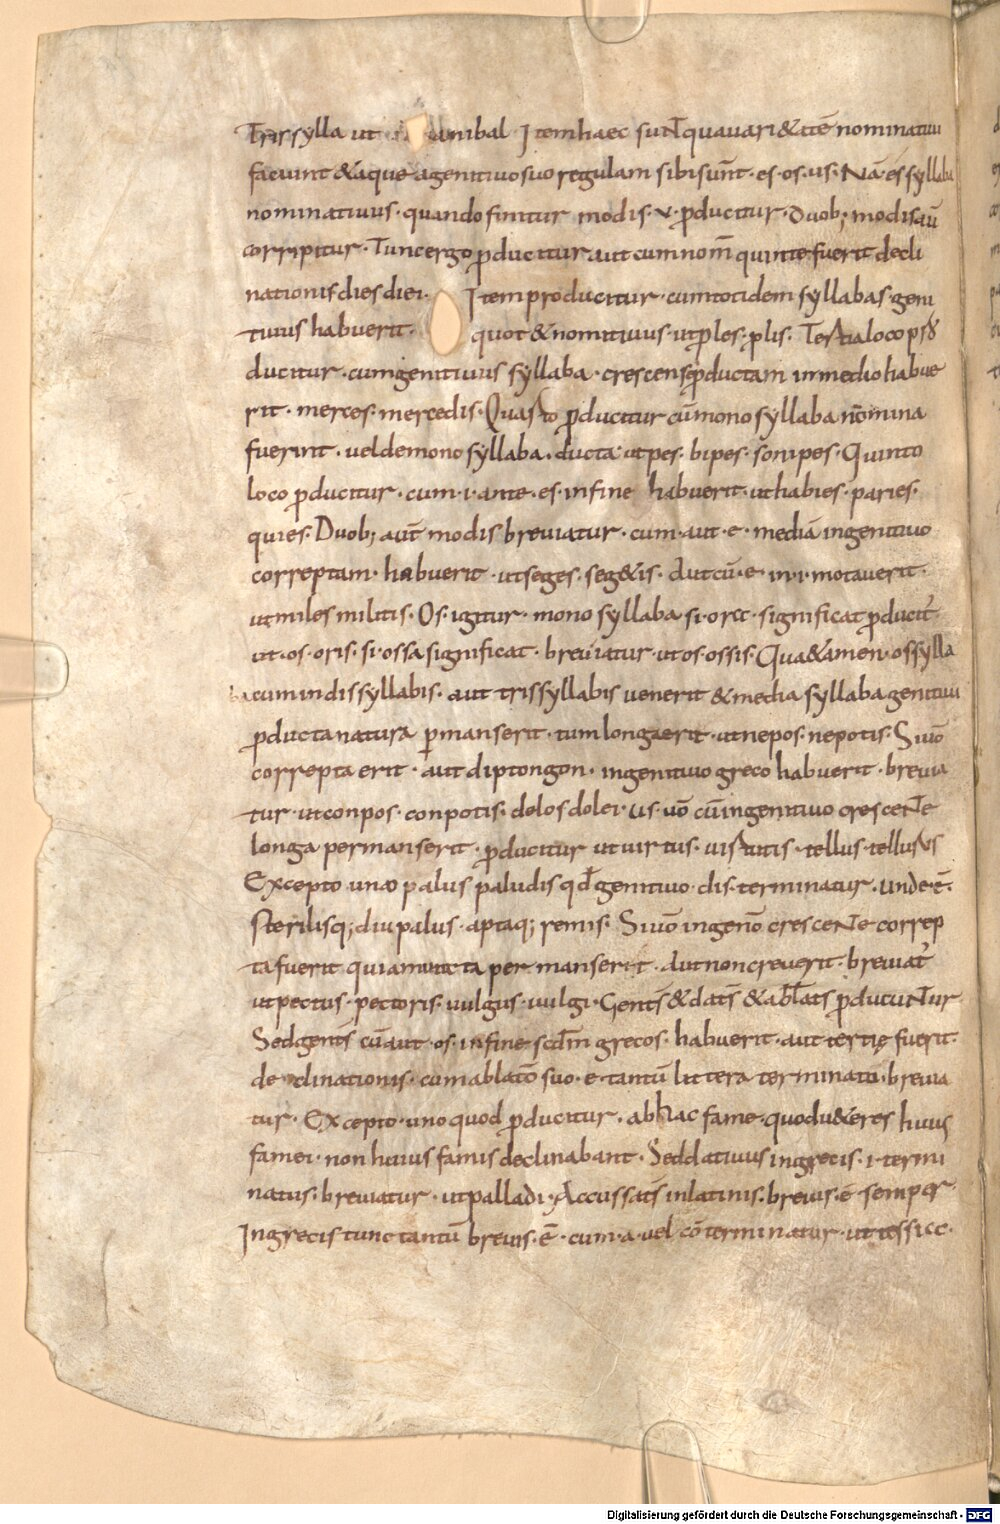 Trissylla ut anibal · Item haec sunt quae uari& itē nominatiui
faciunt & aque agenitiuo suo regulam sibi sunt · es · os · us · Nā · es syllaba
nominatiuus · quando finitur modis · v · ꝓducitur · duob; modis aū
corripitur · Tunc ergo ꝓducitur aut cum nom̄ quinte fuerit decli
nationis dies diei · Item producitur · cum totidem syllabas geni
tiuus habuerit · quot & nomitiuus · ut ꝓles · ꝓlis · Tertia loco
ducitur · cum genitiuus syllaba · crescens ꝓductam in medio habue
rit · merces · mercedis · Quarto ꝓducitur cū mono syllaba nōmina
fuerint · uel de mono syllaba · ducta ut pes · bipes · sonipes · Quinto
loco ꝓducitur · cum · i · ante · es · in fine habuerit · ut habies · paries ·
quies · Duob; aut̄ modis breuiatur · cum · aut · e · mediā in genitiuo
correptam · habuerit · ut seges · seg&is · Aut cū · e · in · i · motauerit ·
ut miles militis · Os · igitur · mono syllaba si · ore · significat ꝓducit̄
ut · os · oris · si · ossa significat · breuiatur · ut os · ossis · Quae tamen · os sylla
ba cum in dissyllabis · aut trissyllabis uenerit & media syllaba genitiui
ꝓducta natura ꝑmanserit · tum longa erit · ut nepos · nepotis · Siuō
correpta erit · aut diptongon · in genitiuo greco habuerit · breuia
tur · ut conpos · conpotis · delos dolei · us · uō cū in genitiuo crescente
longa permanserit · ꝓducitur ut uirtus · uirtutis · tellus · tellurus
Excepto uno palus paludis qd̄ genitiuo · dis · terminatur · unde · ē ·
sterilisq; diu palus · aptaq; remis · Siuō in genō crescente correp
ta fuerit quia mutata permanserit · Aut non creuerit · breuiat̄
ut pectus · pectoris · uulgus · uulgi · Gent̄s & dat̄s & ablat̄s ꝓducuntur
Sed gent̄s cū aut · os · in fine scdm̄ grecos · habuerit · aut tertię fuerit ·
declinationis · cum ablatō suo · e · tantū littera terminatū · breuia
tur · Excepto · uno quod ꝓducitur · ab hac fame · quod u&eres huius
famei · non huius famis declinabant · Sed datiuus in grecis · i · termi
natus · breuiatur · ut palladi · Accussat̄s in latinis · breuis · ē semper
In grecis tunc tantū breuis · ē · cum · a · uel cō terminatur ·